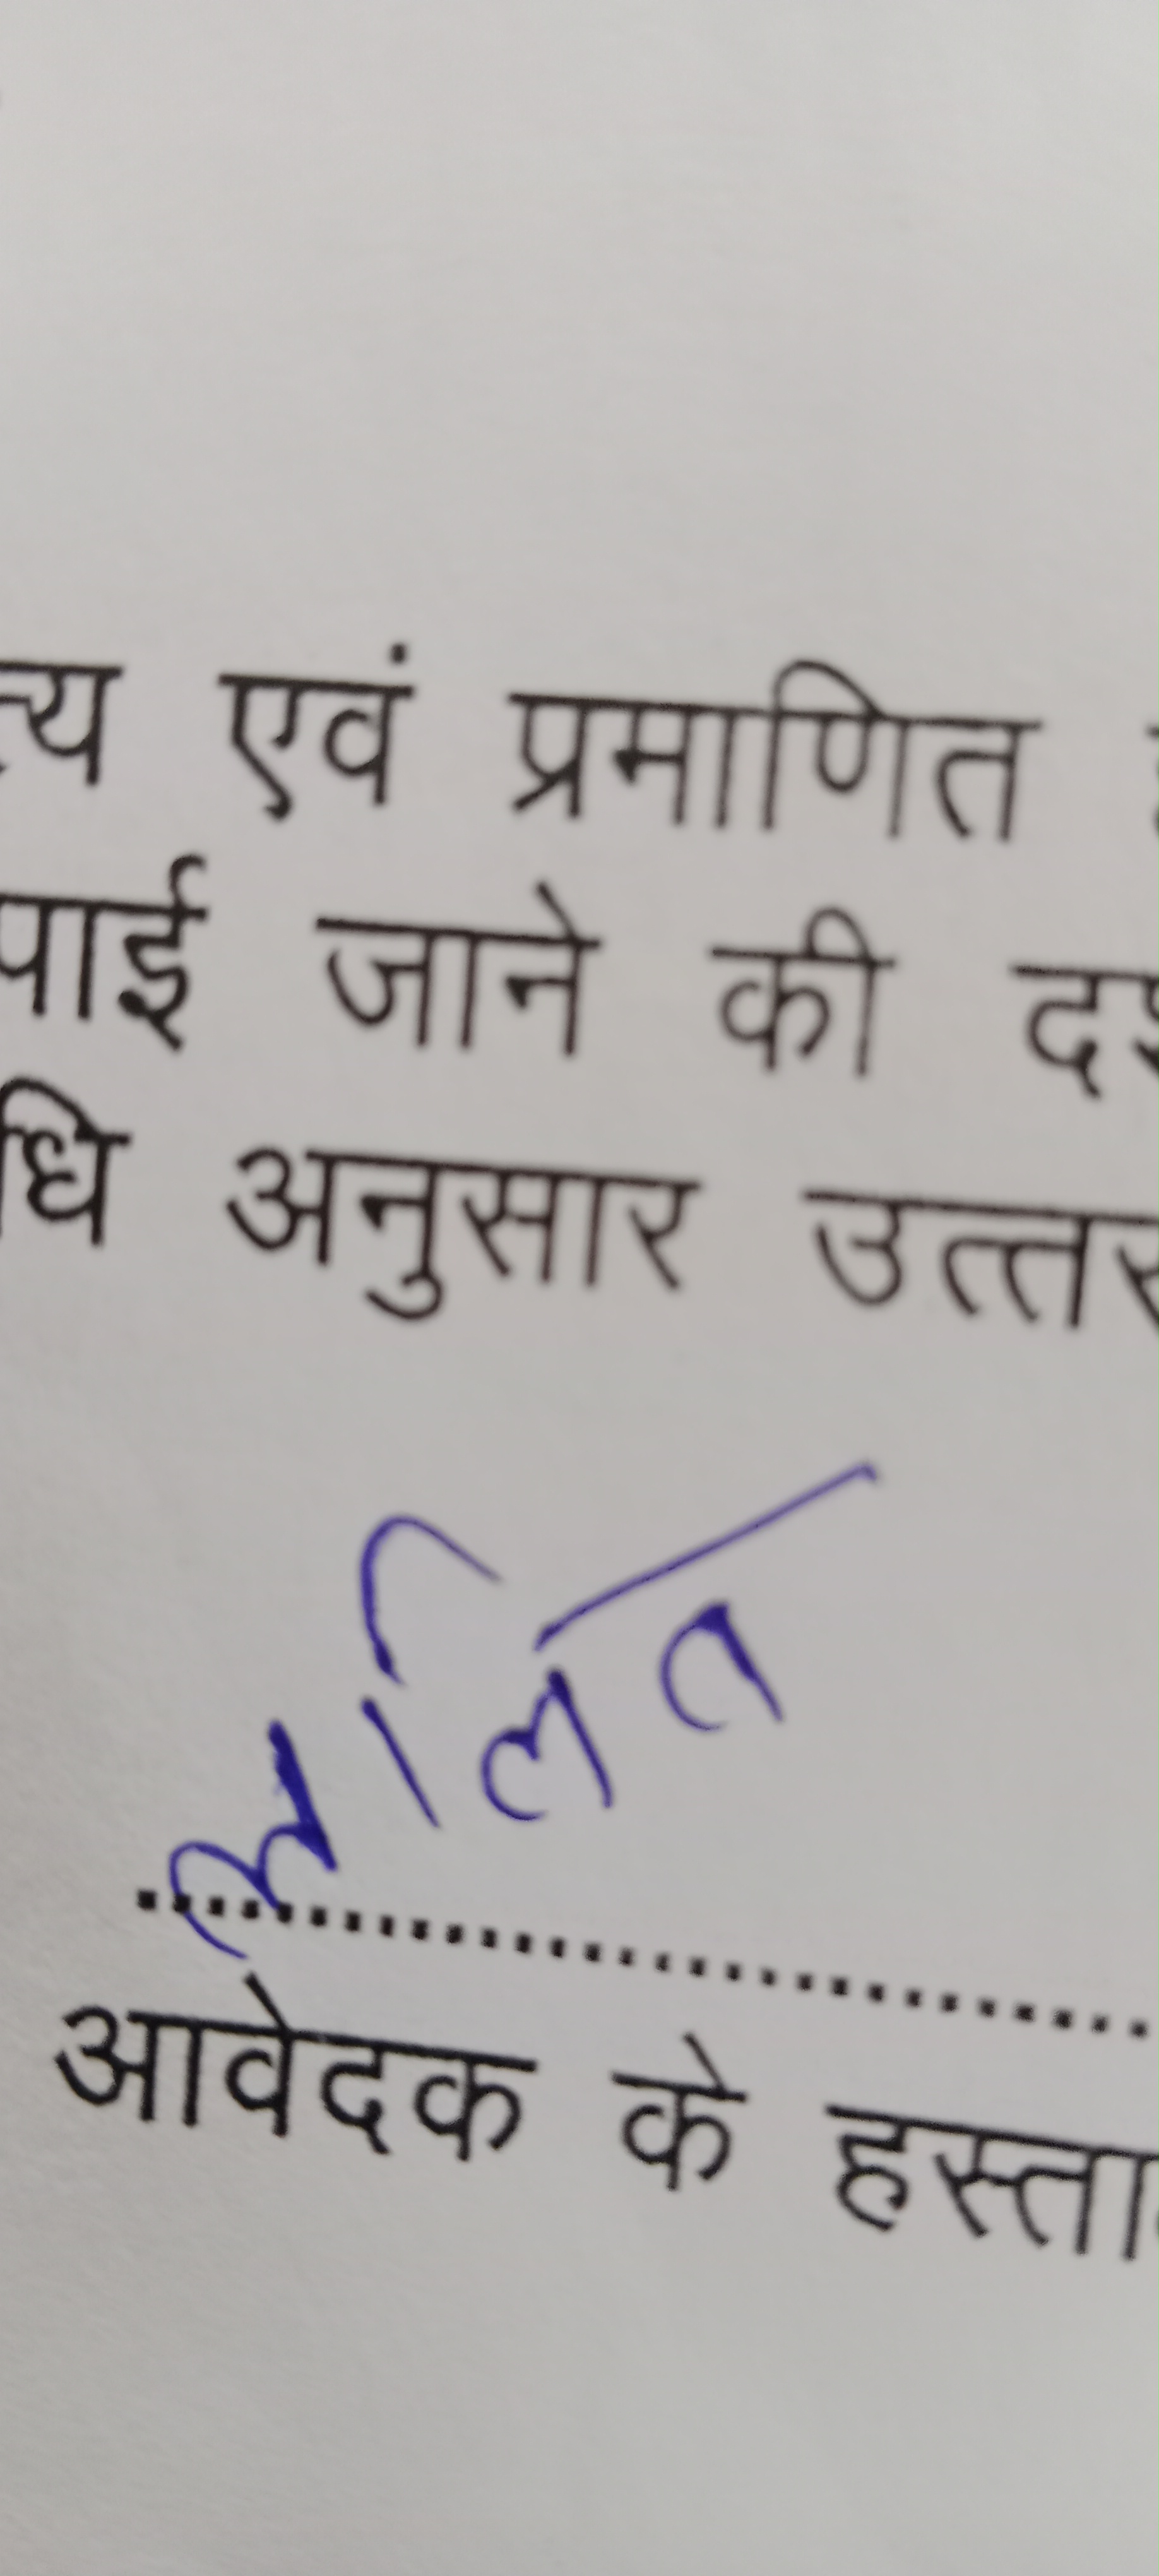 त्य एवं प्रमाणित
पाई जाने की दश
धि अनुसार उत्तर
ललित
आवेदक के हस्ता